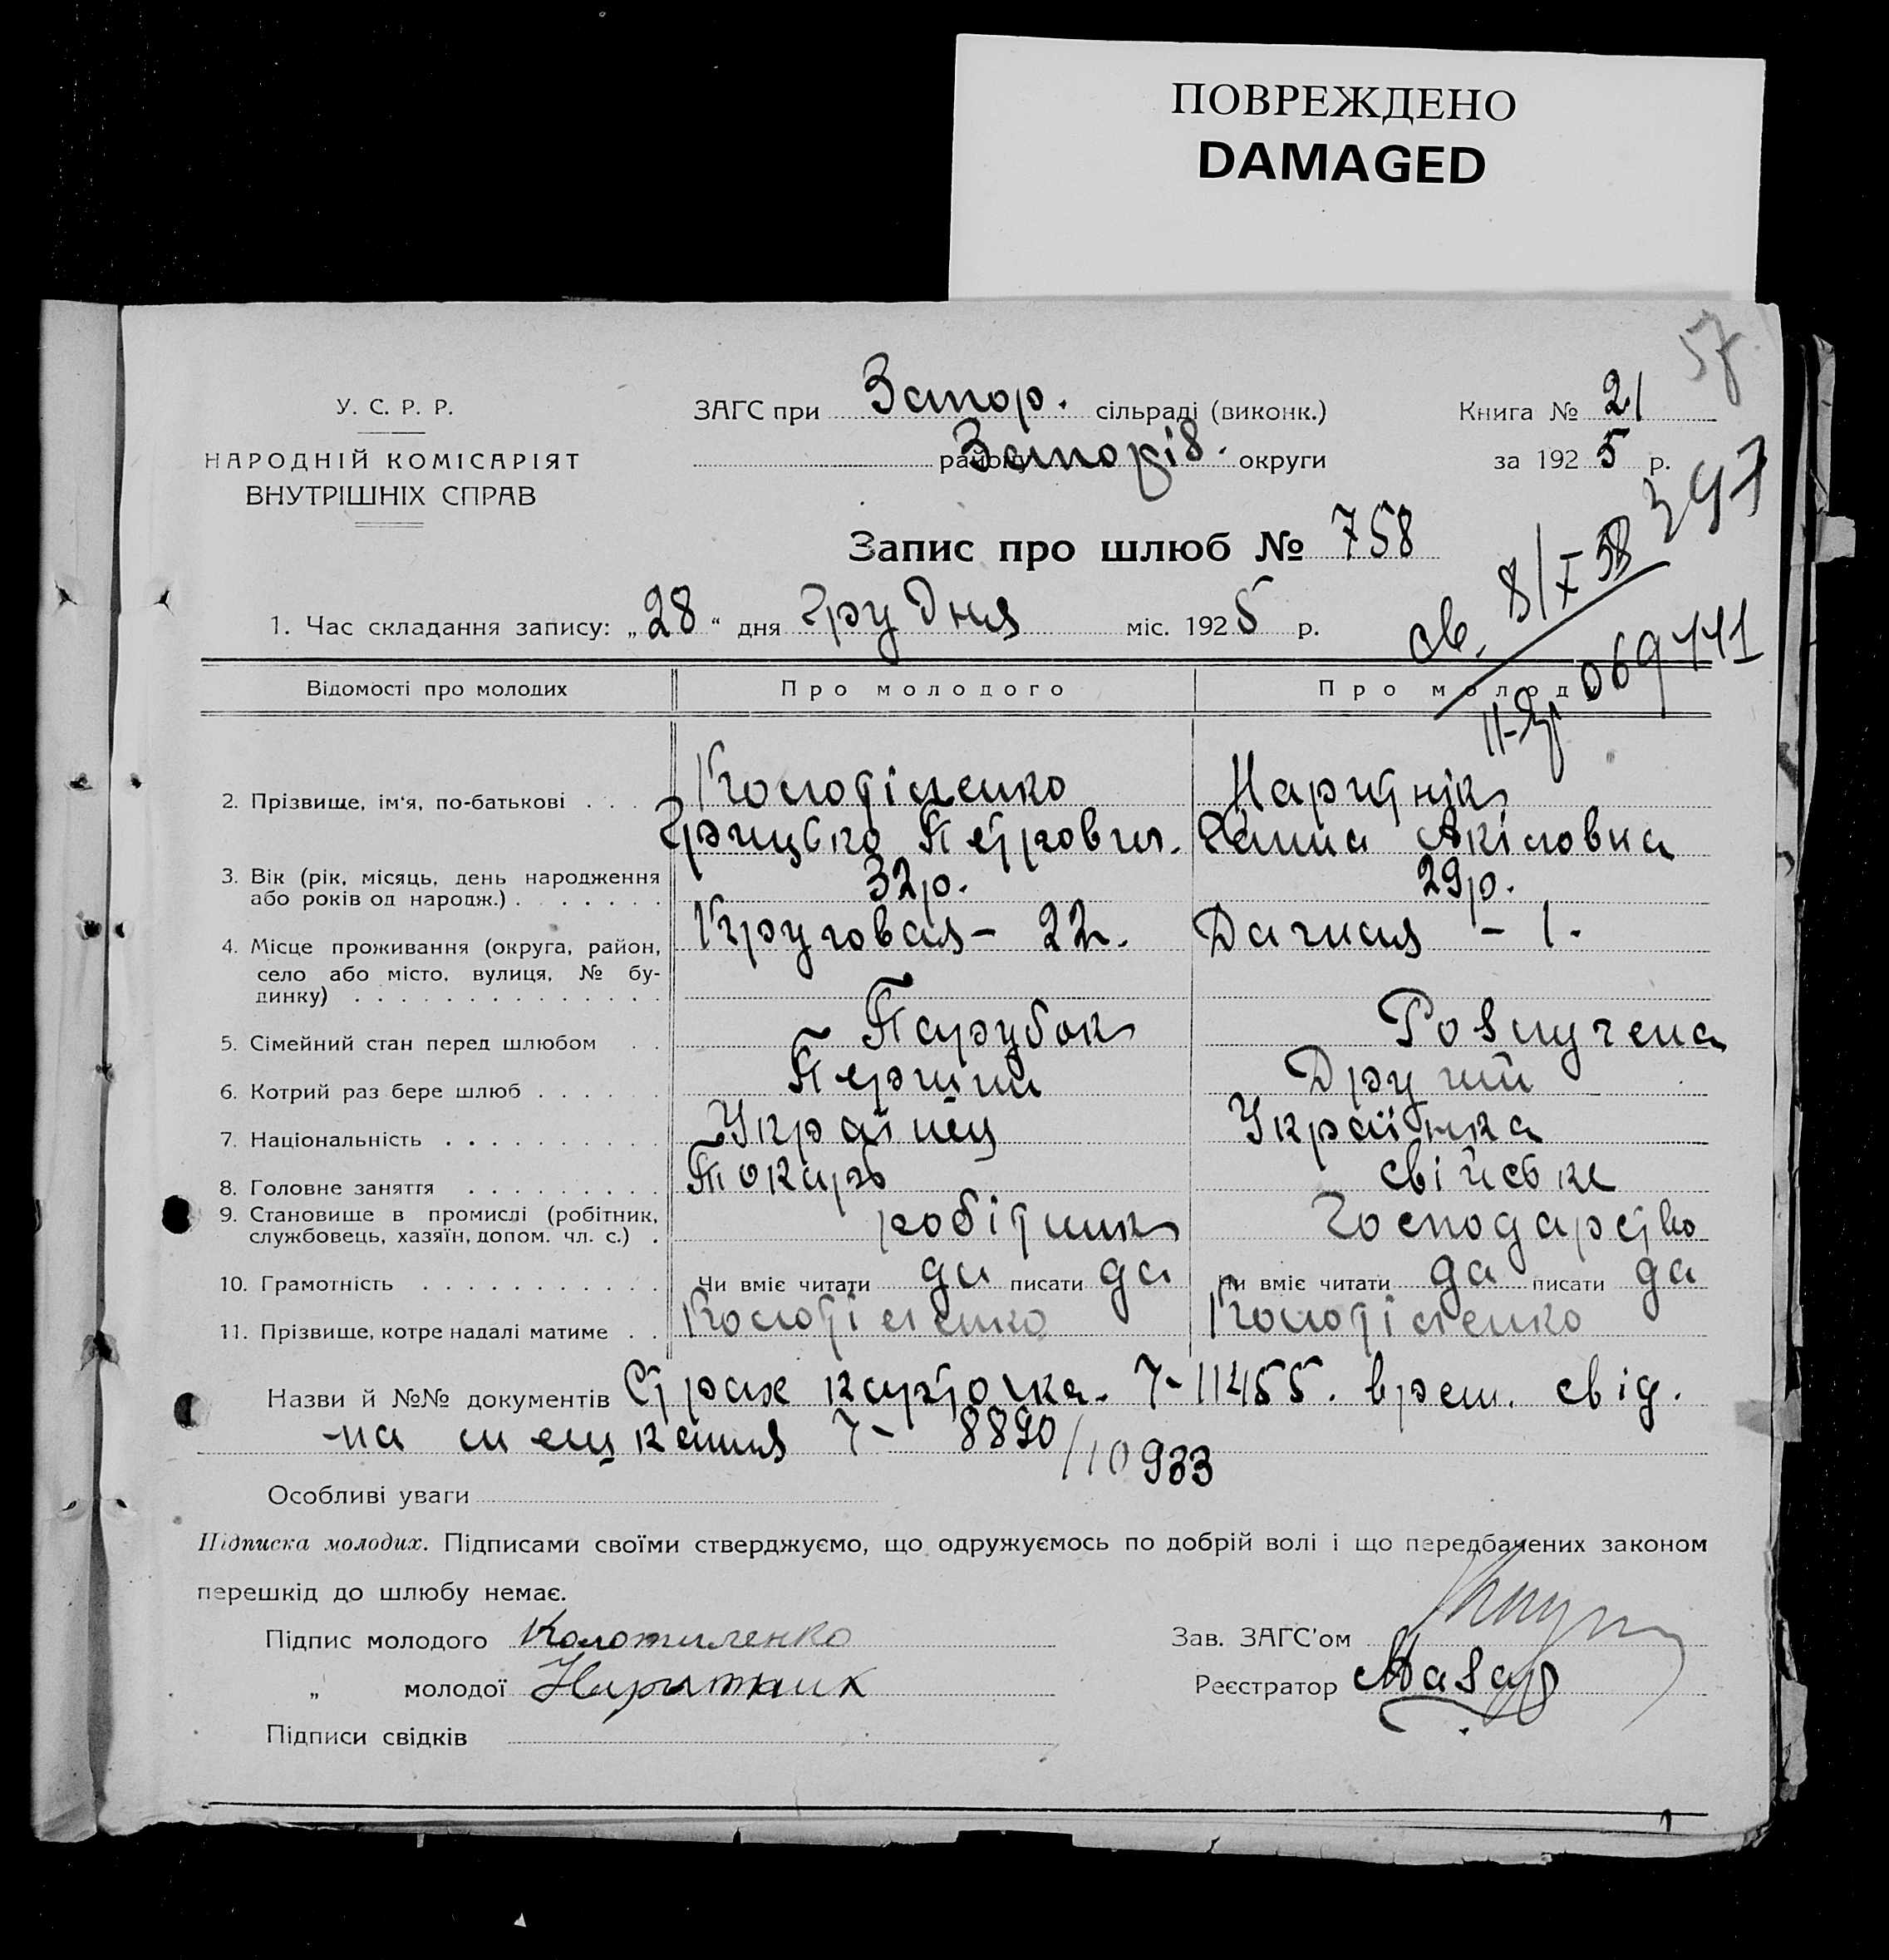 ПОВРЕЖДЕНО
DAMAGED
57
У. С. Р. Р.
НАРОДНІЙ КОМІСАРІЯТ
ВНУТРІШНІХ СПРАВ
ЗАГС при Запор. сільраді (виконк.)
району Запоріз. округи
Книга № 21
за 1925 р.
347
Запис про шлюб № 758
1. Час складання запису: „28" дня Грудня міс. 1925 р.
св. 8/X 58
069441
Відомості про молодих
Про молодого
Про молод
2. Прізвище, ім'я, по-батькові
Колотіленко
Грицько Петрович.
Наритнік
Ганна Акіловна
3. Вік (рік, місяць, день народження
або років од народж.)
32р.
29р.
4. Місце проживання (округа, район,
село або місто, вулиця, № бу-
динку)
Круговая - 22.
Дачная - 1.
5. Сімейний стан перед шлюбом
Парубок
Розлучена
6. Котрий раз бере шлюб
Перший
Другий
7. Національність
Українец
Українка
8. Головне заняття
Токарь
свійське
9. Становище в промислі (робітник,
службовець, хазяїн, допом. чл. с.)
робітник
господарство
10. Грамотність
Чи вміє читати да писати да
Чи вміє читати да писати да
11. Прізвище, котре надалі матиме
Колотіленко
Колотіленко
Назви й №№ документів Страх карточка. 7-11455. врем. свід.
на мешкання 7- 8890/10933
Особливі уваги
Підписка молодих. Підписами своїми стверджуємо, що одружуємось по добрій волі і що передбачених законом
перешкід до шлюбу немає.
Підпис молодого Колотиленко
Зав. ЗАГС'ом
„ молодої Наритник
Реєстратор Мазар
Підписи свідків